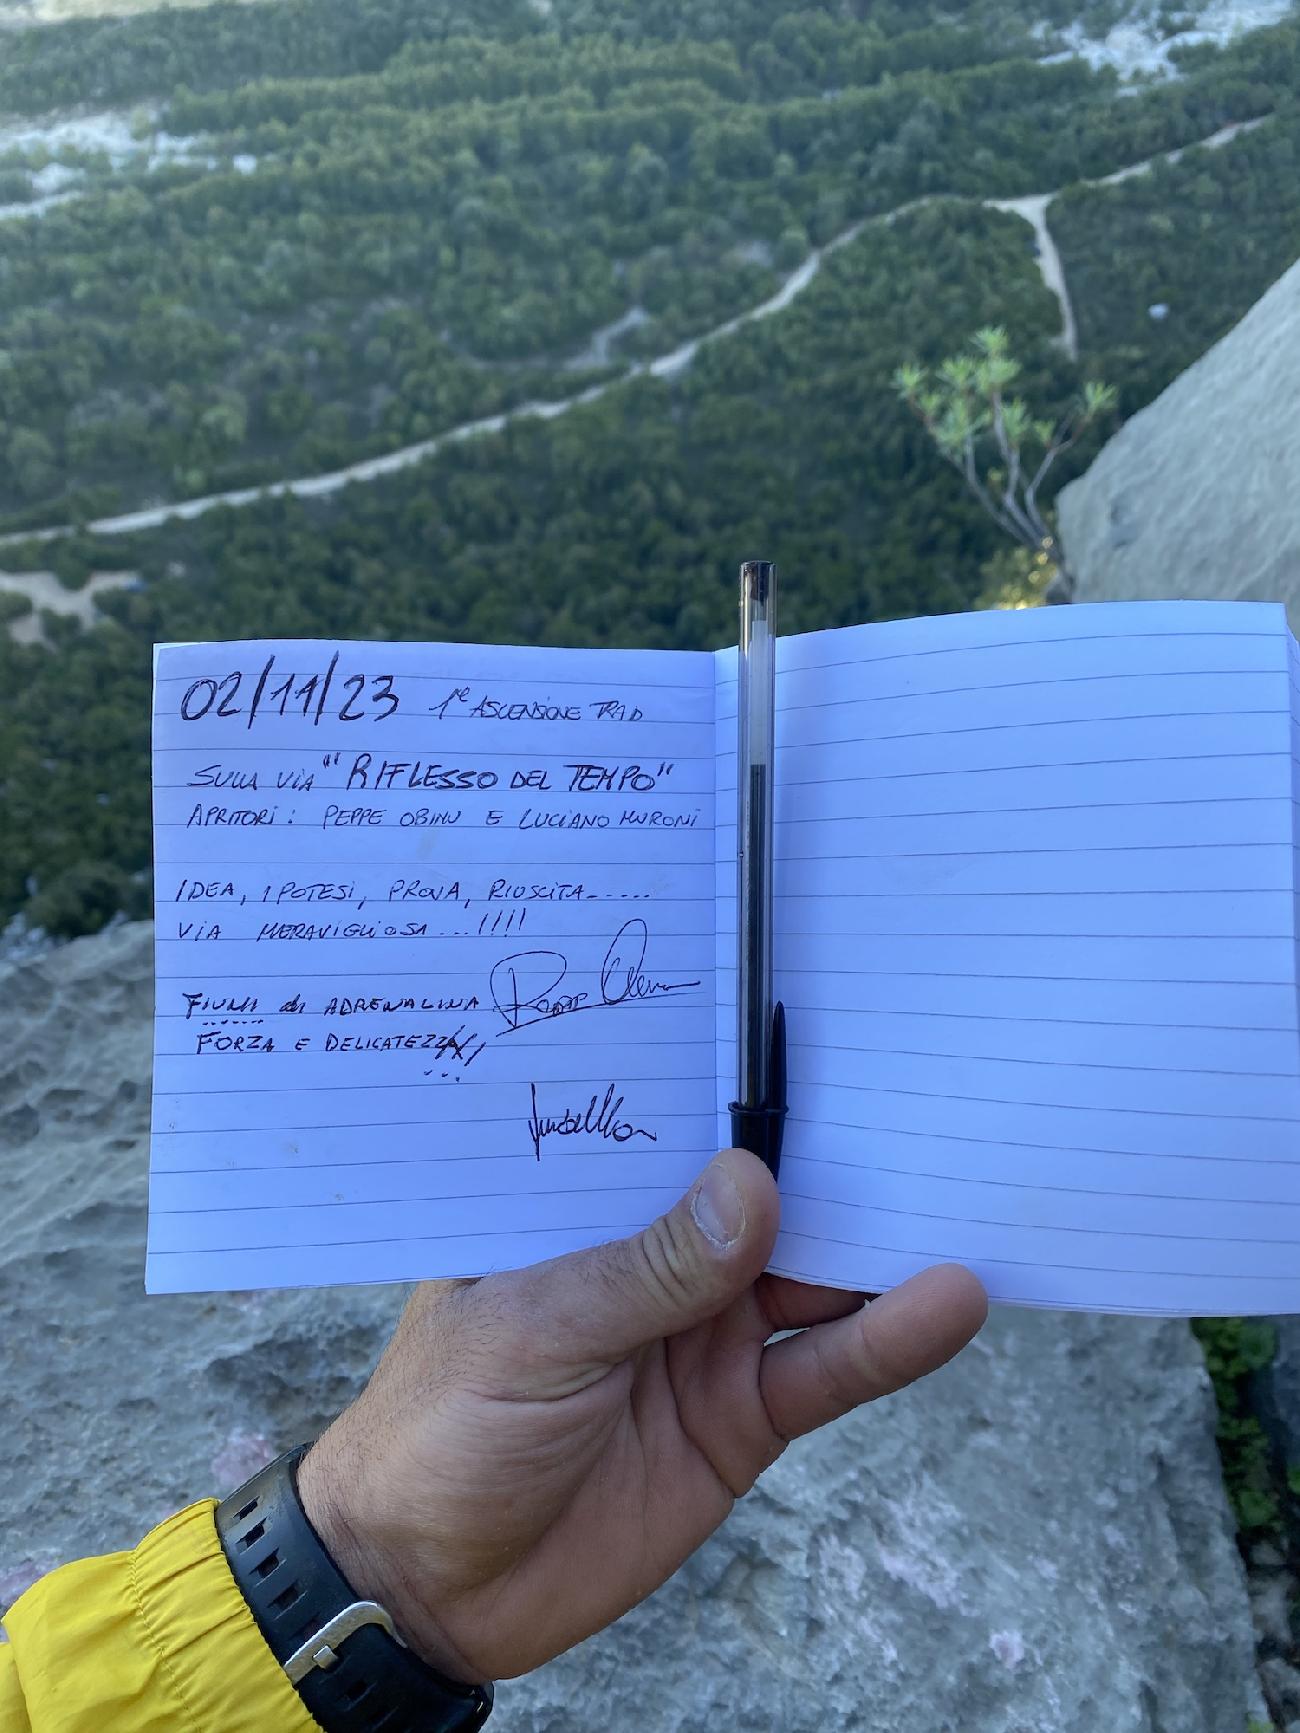 02/11/23 1ª ASCENSIONE TRAD
SULLA VIA "RIFLESSO DEL TEMPO"
APRITORI: PEPPE OBINU E LUCIANO MURONI
IDEA, IPOTESI, PROVA, RIUSCITA......
VIA MERAVIGLIOSA...!!!!
FIUMI di ADRENALINA
FORZA E DELICATEZZA!!